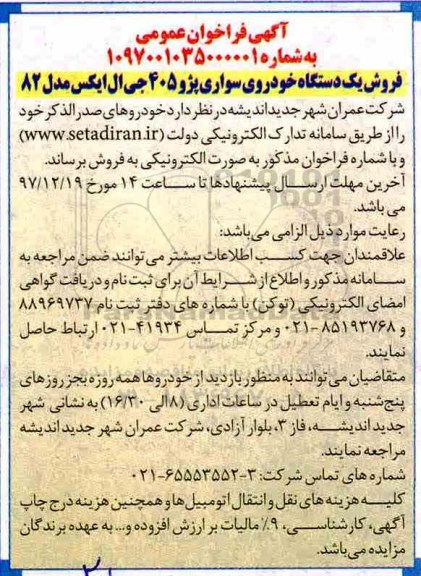 آگهی فراخوان عمومی
به شماره ۱۰۹۷۰۰۱۰۳۵۰۰۰۰۰۱
فروش یک دستگاه خودروی سواری پژو ۴۰۵ جی ال ایکس مدل ۸۲
شرکت عمران شهر جدید اندیشه در نظر دارد خودروهای صدرالذکر خود
را از طریق سامانه تدارک الکترونیکی دولت (www.setadiran.ir)
و با شماره فراخوان مذکور به صورت الکترونیکی به فروش برساند.
آخرین مهلت ارسال پیشنهادها تا ساعت ۱۴ مورخ ۹۷/۱۲/۱۹
می باشد.
رعایت موارد ذیل الزامی می‌باشد:
علاقمندان جهت کسب اطلاعات بیشتر می توانند ضمن مراجعه به
سامانه مذکور و اطلاع از شرایط آن برای ثبت نام و دریافت گواهی
امضای الکترونیکی (توکن) با شماره های دفتر ثبت نام ۸۸۹۶۹۷۳۷
و ۸۵۱۹۳۷۶۸-۰۲۱ و مرکز تماس ۴۱۹۳۴-۰۲۱ ارتباط حاصل
نمایند.
متقاضیان می توانند به منظور بازدید از خودروها همه روزه بجز روزهای
پنج‌شنبه و ایام تعطیل در ساعات اداری (۸ الی ۱۶/۳۰) به نشانی شهر
جدید اندیشه، فاز ۳، بلوار آزادی، شرکت عمران شهر جدید اندیشه
مراجعه نمایند.
شماره های تماس شرکت: ۳-۶۵۵۵۳۵۵۲-۰۲۱
کلیه هزینه های نقل و انتقال اتومبیل‌ها و همچنین هزینه درج چاپ
آگهی، کارشناسی، ۹٪ مالیات بر ارزش افزوده و... به عهده برندگان
مزایده می‌باشد.